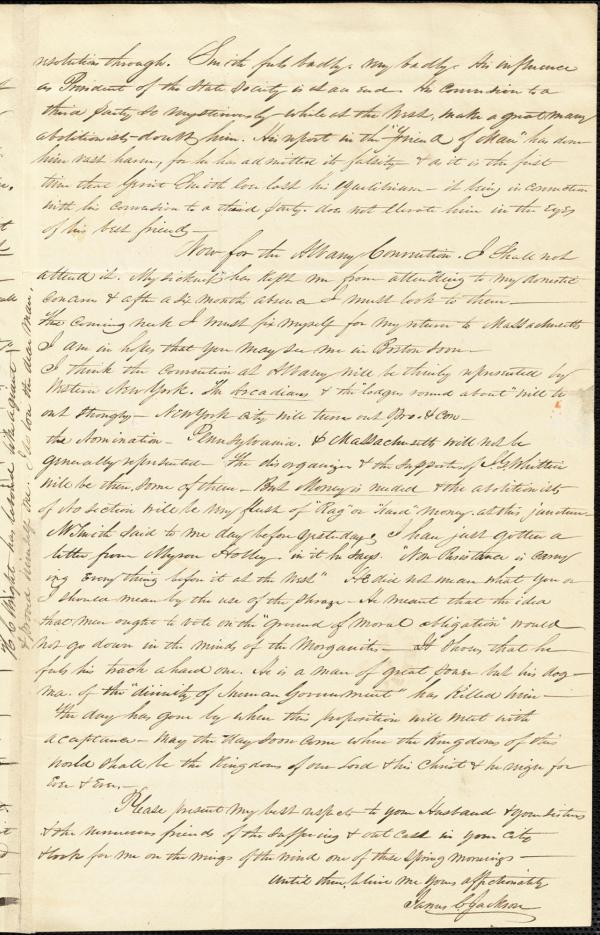 resolutions through. Smith feels badly, very badly. His influence
as President of the State Society is at an end. His conversion to a
third party so mysteriously while at the West, make a great many
abolitionists doubt him. His report in the "Friend of Man" has done
him vast harm, for he has admitted its falsity & as it is the first
time that Gerrit Smith ever lost his Equilibrium - it being in connection
with his conversion to a third party, does not elevate him in the Eyes
of his best friends -
Now for the Albany Convention. I shall not
attend it. My sickness has kept me from attending to my domestic
concerns & after a six month absence I must look to them. -
The coming week I must fix myself for my return to Massachusetts
I am in hopes that you may see me in Boston soon -
I think the Convention at Albany will be thinly represented by
Western New York. The Arcadians & the "lodges round about" will be
out strongly - New York City will turn out Pro. & con -
the Nomination - Pennsylvania & Massachusetts will not be
generally represented - The disorganizers & the supporters of J.G. Whittier
will be there, some of them - But Money is needed & the abolitionists
of no section will be very flush of "Rag" or "Hard" money at this juncture.
Mr Smith said to me day before yesterday, I have just gotten a
letter from Myron Holley - in it he says "Non Resistance is carry
ing every thing before it at the West" He did not mean what you or
I should mean by the use of the phrase - He meant that the idea
that men ought to vote on the "ground of moral obligation" would
not go down in the minds of the Morganites - It shows that he
feels his track a hard one. He is a man of great power but his dog-
ma of the "divinity of human Government" has killed him -
The day has gone by when this proposition will meet with
acceptance - May the day soon come when the Kingdoms of this
world shall be the Kingdoms of our Lord & his Christ & he reign for
Ever & Ever. -
Please present my best respects to your Husband & your sisters
& the numerous friends of the suffering & out cast in your city
& look for me on the wings of the wind one of these Spring mornings -
Until then, believe me yours affectionately
James C. Jackson
H. C. Wright has behaved like
& proved himself one. I do love the dear man.